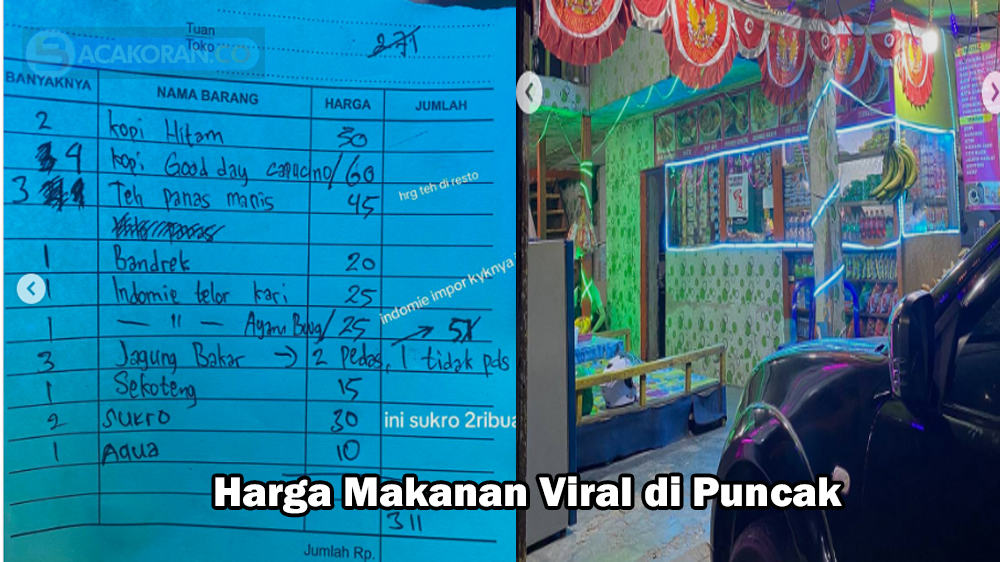 Tuan
Toko
271
ACAKORAN.CO
BANYAKNYA NAMA BARANG HARGA JUMLAH
2 kopi Hitam 30
4 kopi Good day capucino/ 60
3 Teh panas manis 45 hrg teh di resto
1 Bandrek 20
1 Indomie telor kari 25 indomie impor kyknya
1 — " — Ayam Bwg/ 25
3 Jagung Bakar → 2 pedas, 1 tidak pds
1 Sekoteng 15
2 Sukro 30 ini sukro 2ribua
1 Aqua 10
311
Jumlah Rp.
Harga Makanan Viral di Puncak